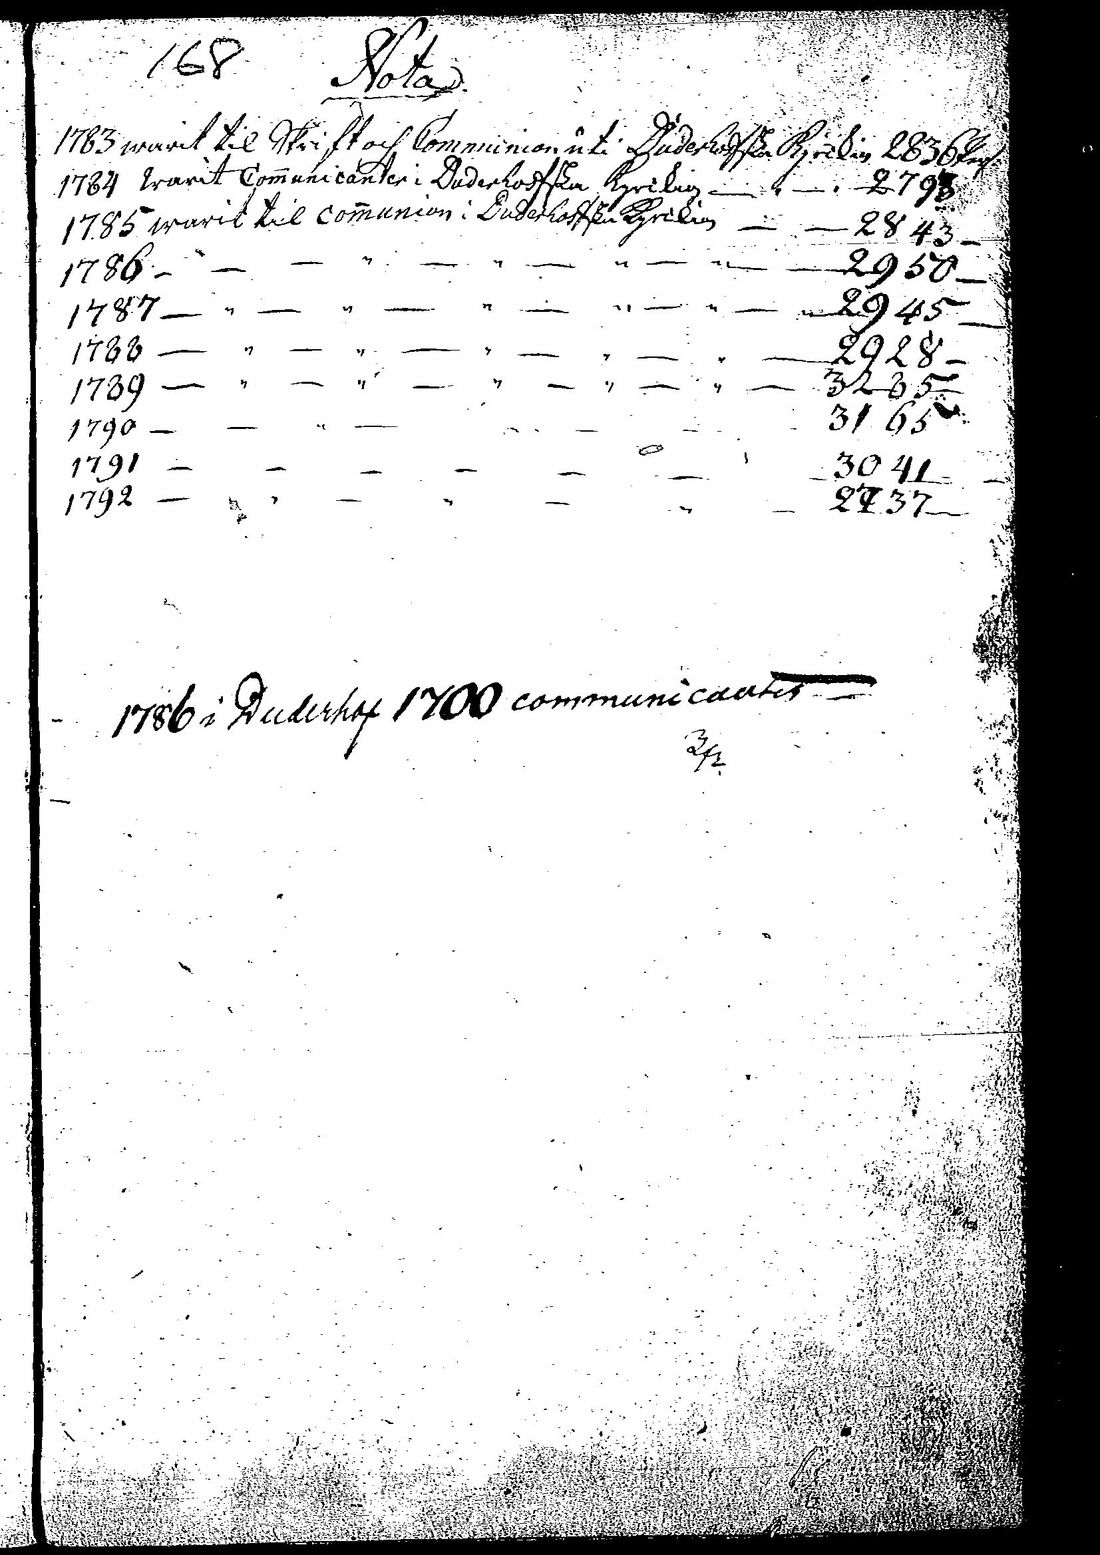 168 Nota
1783 warit til Skrift och Communion uti Duderhoffska Kyrckan 2836 Pers:
1784 warit Com̄unicanter i Duderhoffska Kyrckan — " — " 2793
1785 warit til com̄union i Duderhoffska Kyrckan — — 2843 —
1786 — " — — " — " — " — " — 2950 —
1787 — " — " — " — " — " — 2945 —
1788 — " — " — " — " — " — 2928 —
1789 — " — " — " — " — " — 3235 —
1790 — — " — — — — 3165
1791 — — — — — — 3041 —
1792 — " — " — " — 2737 —
1786 i Duderhof 1700 communicantes —